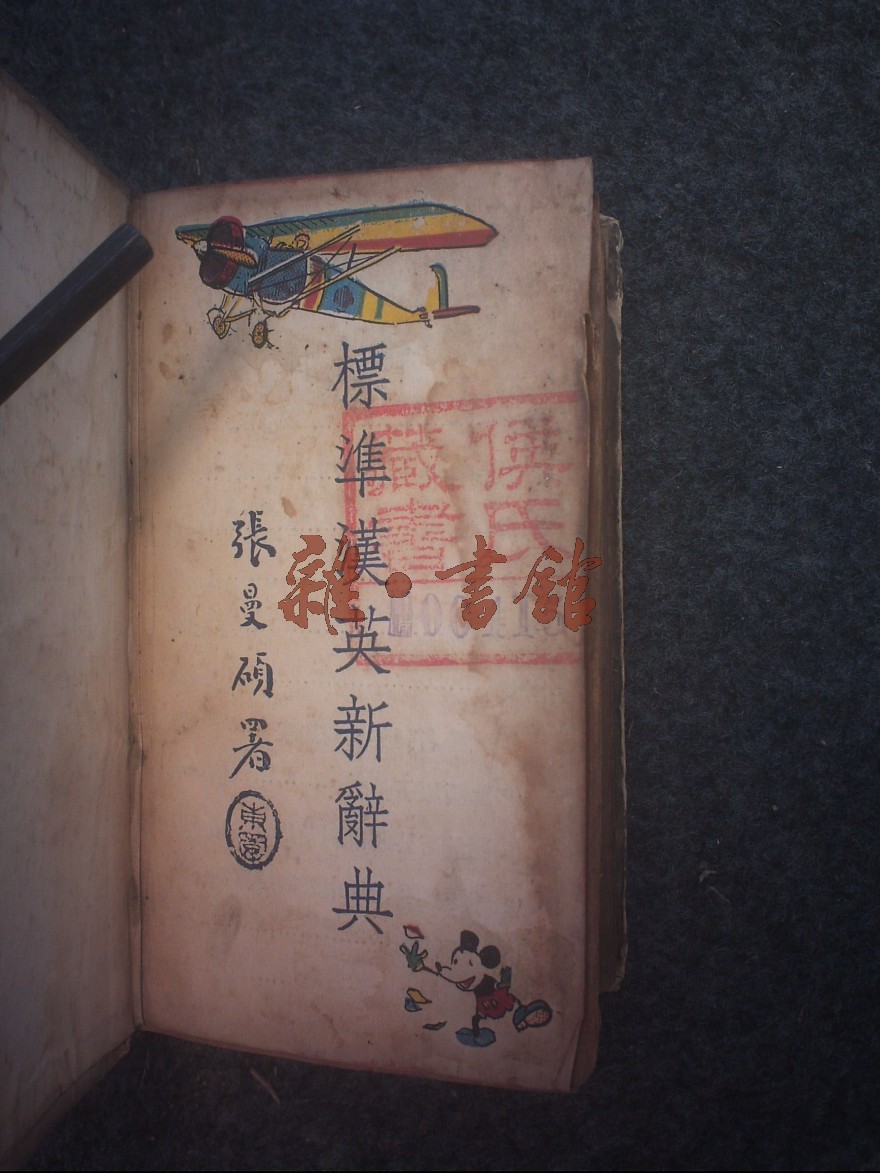 標準漢英新辭典
張曼碩署
侯氏
藏書
雜·書館